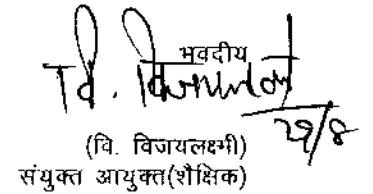 भवदीय
वि. विजयलक्ष्मी
२९/४
(वि. विजयलक्ष्मी)
संयुक्त आयुक्त(शैक्षिक)